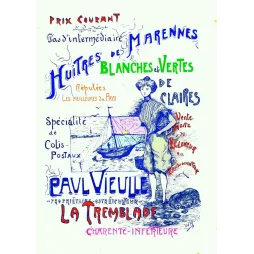 PRIX COURANT
Pas d'intermédiaire
HUITRES DE MARENNES
BLANCHES et VERTES
DE
CLAIRES
Réputées
LES MEILLEURES DU PAYS
Spécialité
de
Colis-
Postaux
Vente
Forte
PAUL VIEULLE
PROPRIÉTAIRE OSTRÉICULTEUR
LA TREMBLADE
CHARENTE-INFÉRIEURE